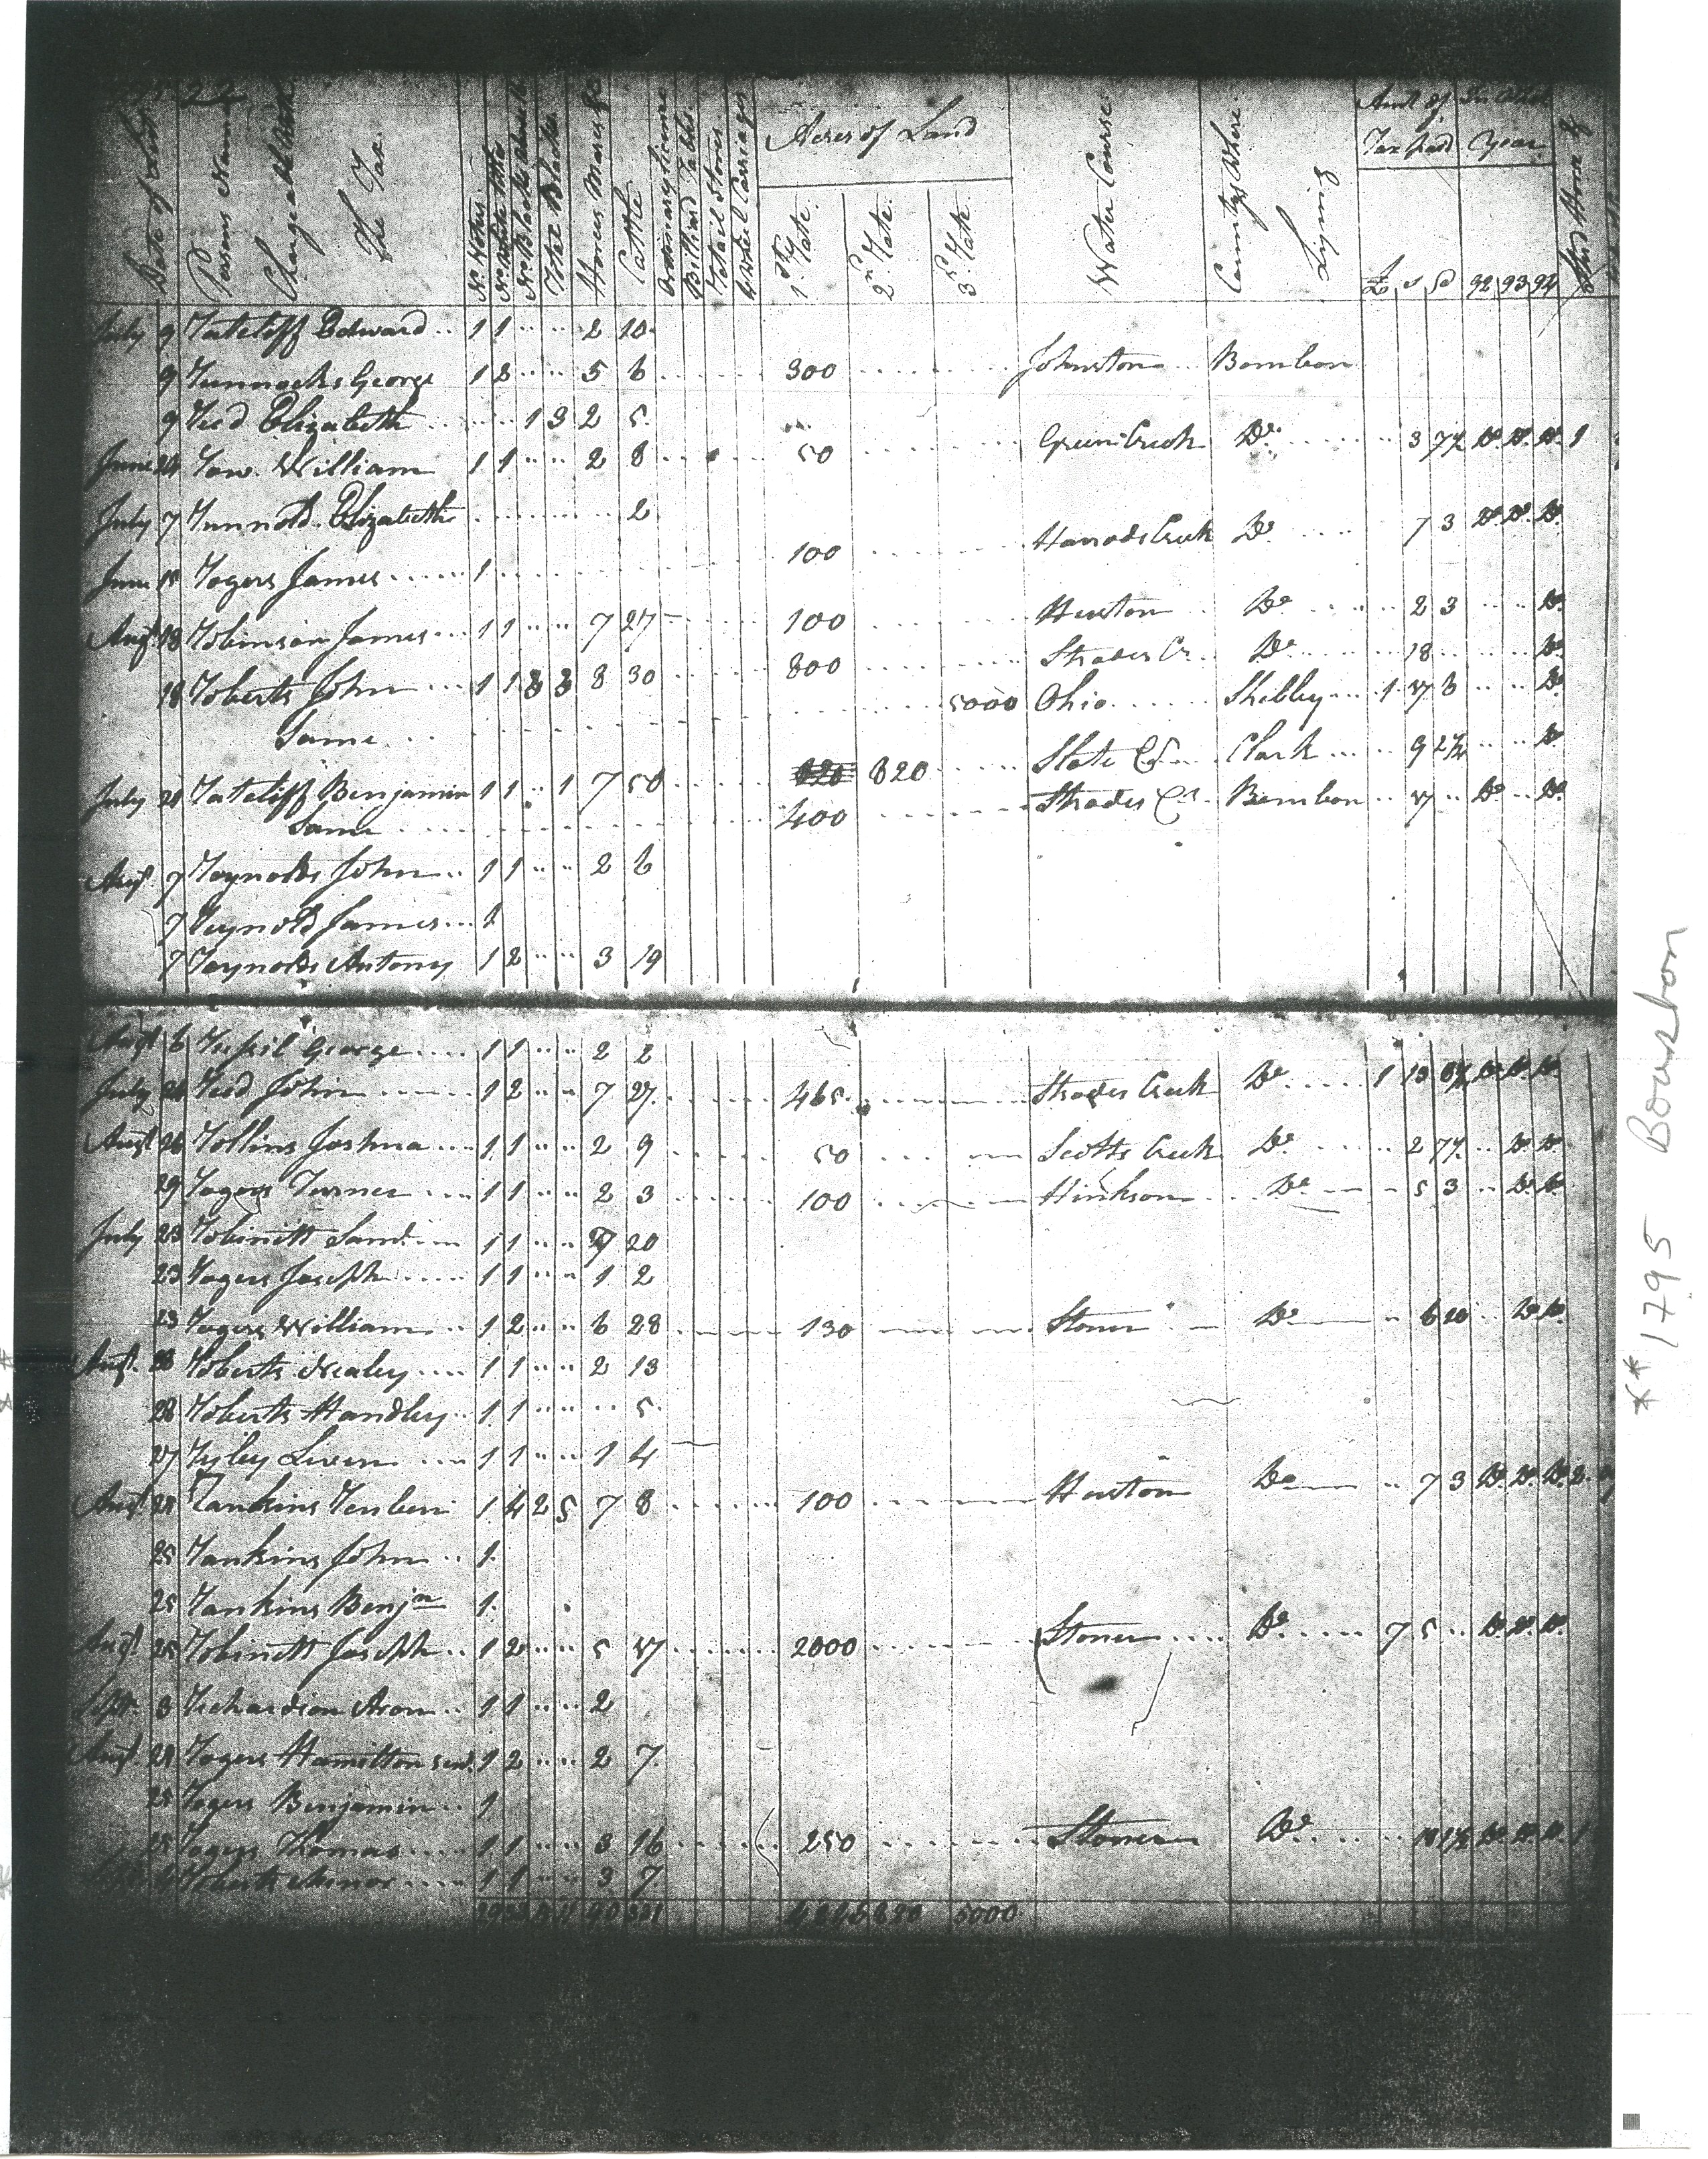 22
Date of List
Persons Names
Chargeable With
The Tax
No Votes
Total Blacks
Horses Mares &c
Cattle
Ordinary licence
Billiard Tables
Retail Stores
Wheel Carriages
Acres of Land
1st Rate.
2d Rate.
3d Rate.
Water Course.
County Where
Lying
Amt of Tax Paid
In What Year
£ s d 92 93 94
Stud Horse &
July 9 Ratcliff Edward 1 1 2 10
9 Runnocks George 1 2 5 6 300 Johnston Bourbon
9 Reed Elizabeth 1 3 2 5
June 24 Row William 1 1 2 8 50 Green Creek Do 3 7½ Do Do Do 1
July 7 Runnold Elizabeth 2
100 Harrods Creek Do 7 3 Do Do Do
June 15 Rogers James 1
Augt 18 Robinson James 1 1 7 27 100 Huston Do 2 3 Do
18 Roberts John 1 1 3 3 8 30 800 Strodes Cr. Do 18 Do
Same 5000 Ohio Shelbey 1 17 6 Do
July 21 Ratcliff Benjamin 1 1 1 7 50 620 620 Slate Cr Clark 9 2½ Do
Same 400 Strodes Cr. Bourbon 17 Do Do
Augt. 7 Raynolds John 1 1 2 6
7 Reynold James 1
7 Raynolds Antony 1 2 3 19
Augt 6 Russil George 1 1 2 2
July 21 Reed John 1 2 7 27 465 Strodes Creek Do 1 13 Do Do Do
Augt 26 Rollins Joshua 1 1 2 9 50 Scotts Creek Do 2 7½ Do Do
29 Rogers Turner 1 1 2 3 100 Hinkson Do 5 3 Do Do
July 23 Robinett Saml 1 1 7 20
23 Rogers Joseph 1 1 1 2
23 Rogers William 1 2 6 28 130 Stoner Do 6 10 Do Do
Augt. 28 Roberts Nealey 1 1 2 13
28 Roberts Handley 1 1 5
27 Ryley Liven 1 1 1 4
Augt 28 Rankins Reuben 1 4 2 5 7 8 100 Huston Do 7 3 Do Do Do 2
25 Rankins John 1
25 Rankins Benjn 1
Augt 25 Robinett Joseph 1 2 5 17 2000 Stoner Do 7 5 Do Do Do
Sepr. 3 Richardson Aron 1 1 2
Augt. 28 Rogers Hamilton 1 2 2 7
25 Rogers Benjamin 1
25 Rogers Thomas 1 1 3 16 250 Stoner Do Do Do Do
Roberts Minor 1 1 3 7
90 620 5000
** 1795 Bourbon